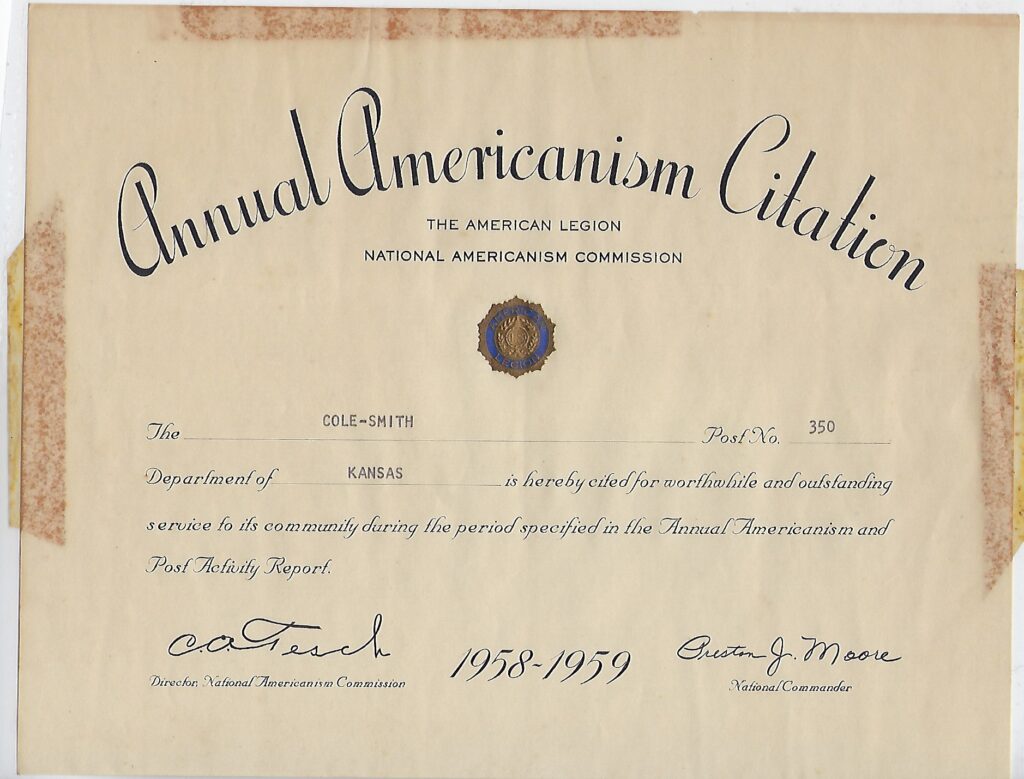 Annual Americanism Citation
THE AMERICAN LEGION
NATIONAL AMERICANISM COMMISSION
AMERICAN
LEGION
The COLE-SMITH Post No. 350
Department of KANSAS is hereby cited for worthwhile and outstanding
service to its community during the period specified in the Annual Americanism and
Post Activity Report.
C.A. Tesch 1958-1959 Preston J. Moore
Director, National Americanism Commission National Commander